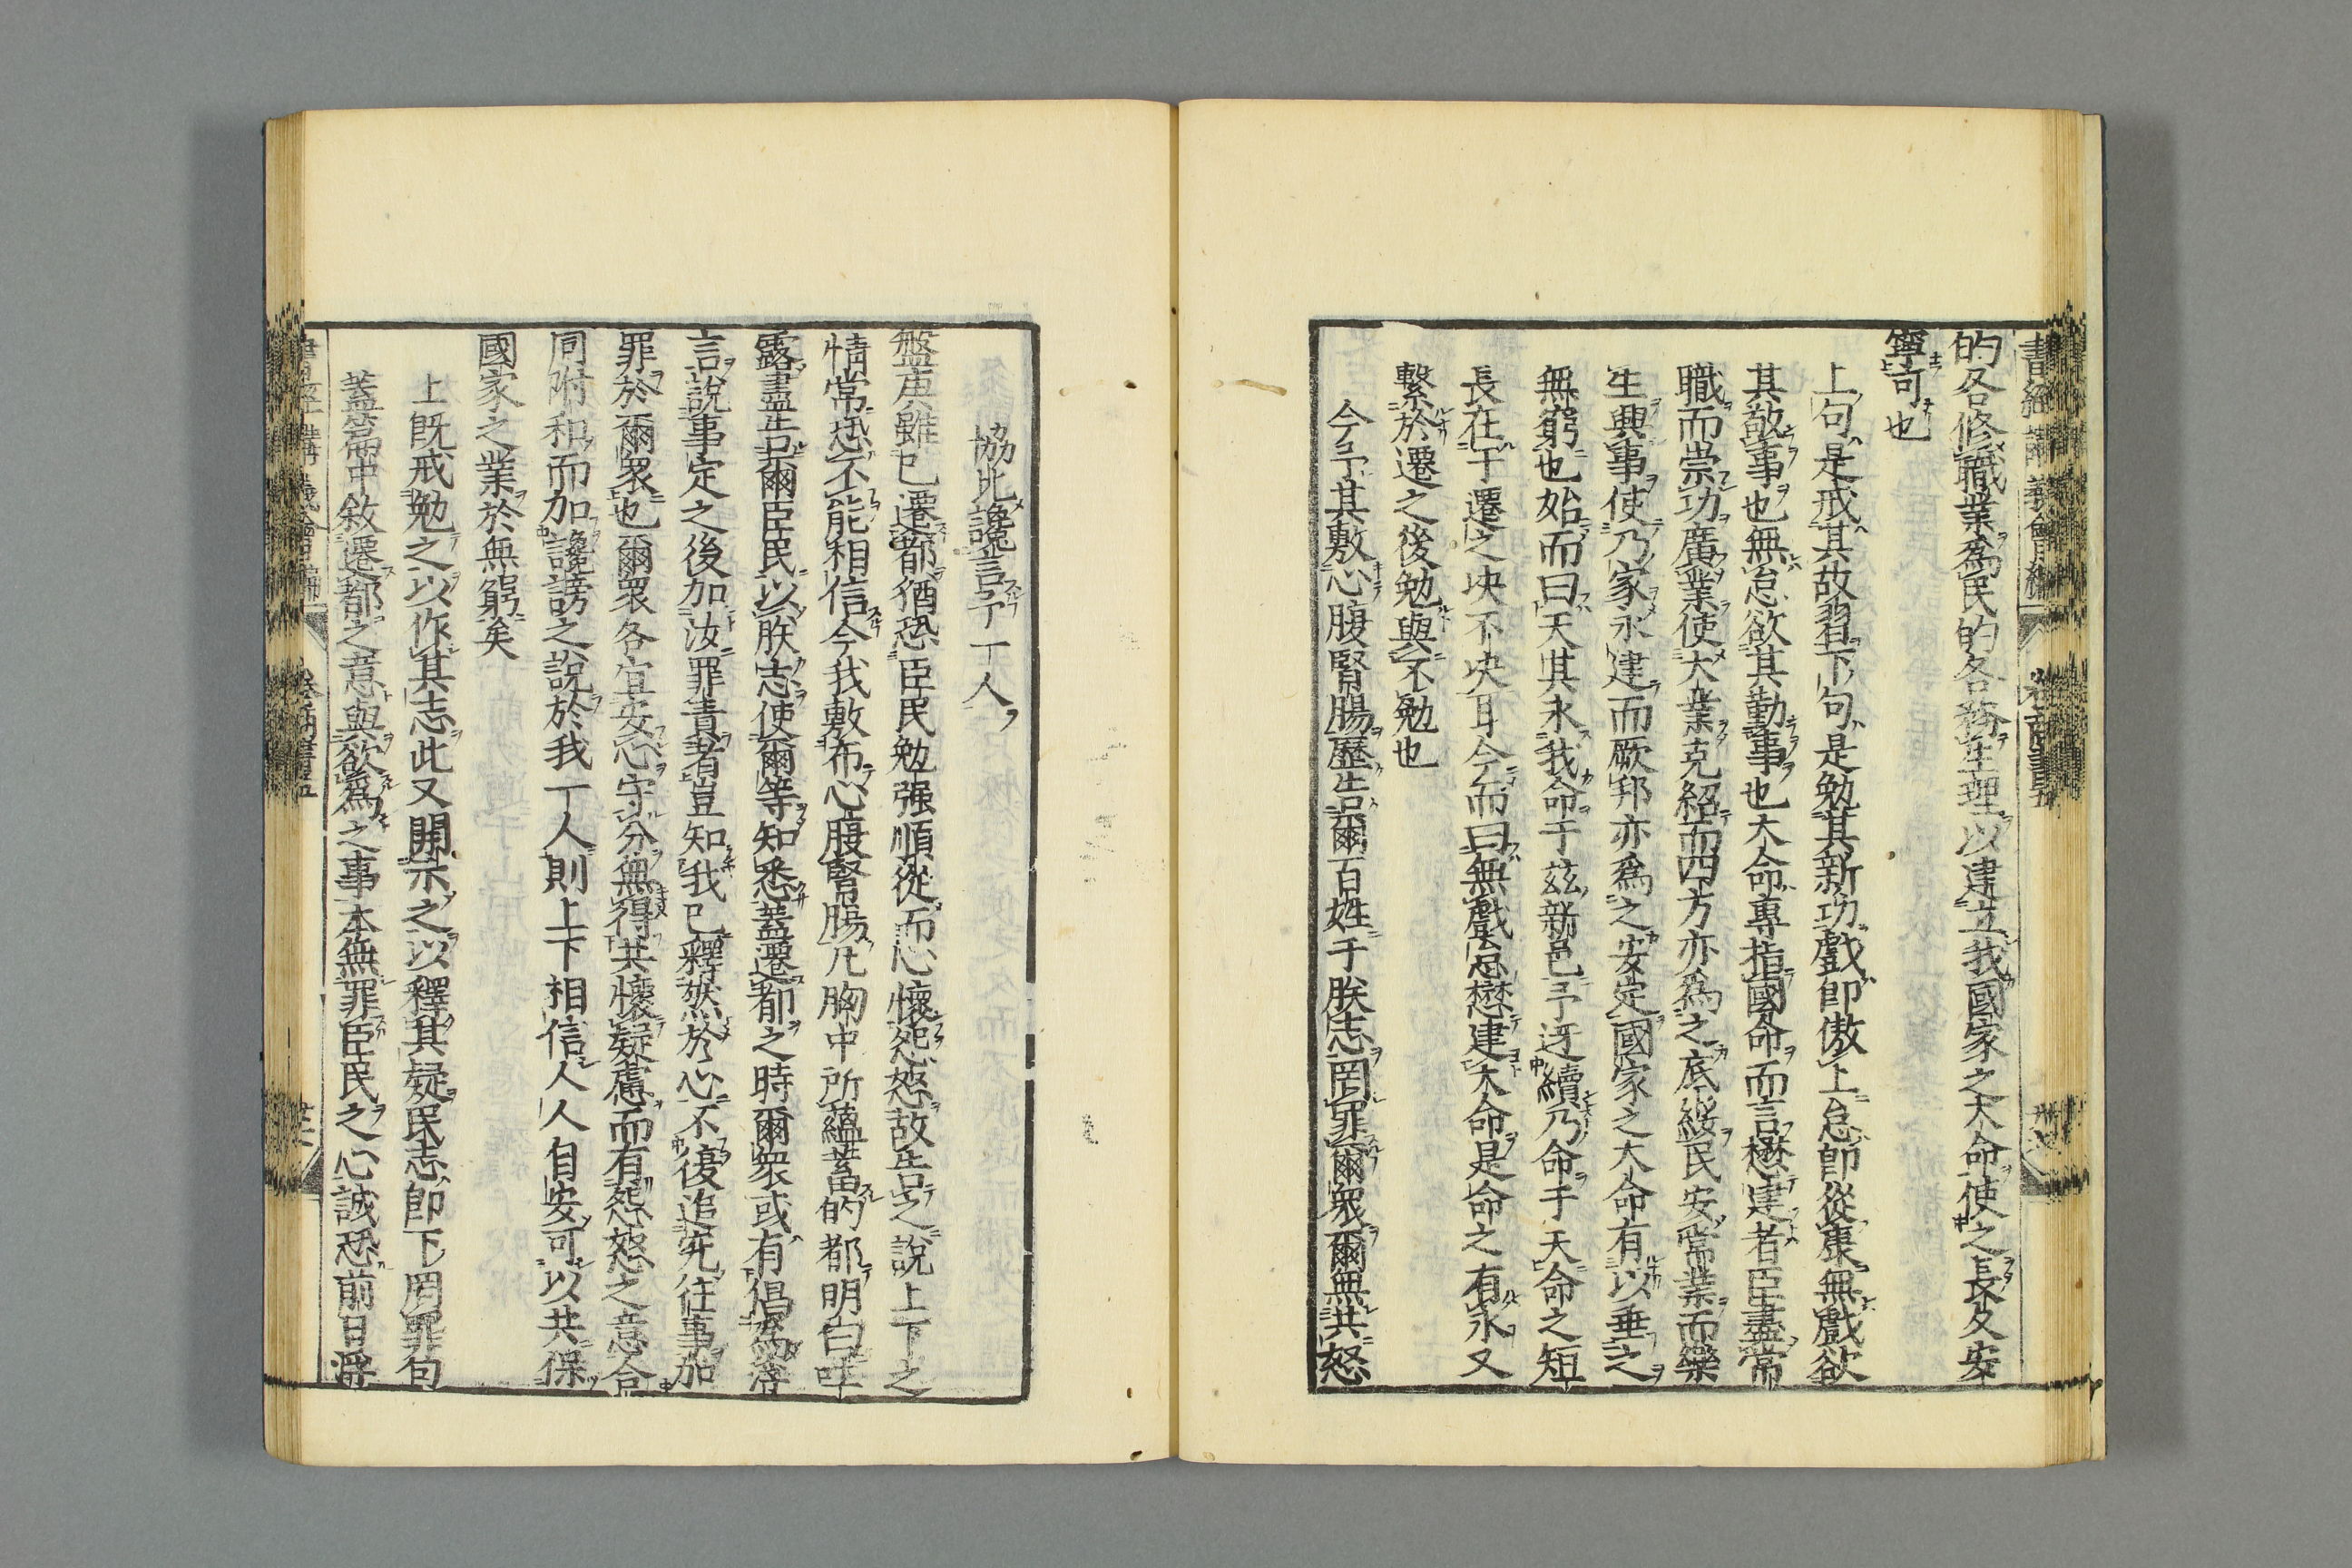 書經講義會編 卷 商書
的各修職業爲民的各務生理以建立我國家之大命使之長久安
寧可也
上句是戒其故習下句是勉其新功戲即傲上怠即從康無戲欲
其敬事也無怠欲其勤事也大命專指國命而言懋建者臣盡常
職而崇功廣業使大業克紹而四方亦爲之底綏民安常業而樂
生興事使乃家永建而厥邦亦爲之安定國家之大命有以垂之
無窮也始而曰天其永我命于玆新邑予迓續乃命于天命之短
長在于遷之决不决耳今而曰無戲怠懋建大命是命之有永又
繫於遷之後勉與不勉也
今予其敷心腹腎腸歷告爾百姓于朕志罔罪爾衆爾無共怒
協比讒言予一人
盤庚雖已遷都猶恐臣民勉强順從而心懷怨怒故告之說上下之
情常恐不能相信今我敷布心腹腎腸凡胸中所蘊蓄的都明白吐
露盡告爾臣民以朕志使爾等知悉蓋遷都之時爾衆或有倡爲
言說事定之後加汝罪責者豈知我已釋然於心不復追究往事加
罪於爾衆也爾衆各宜安心守分無得共懷疑慮而有怨怒之意合
同附和而加讒謗之說於我一人則上下相信人人自安可以共保
國家之業於無窮矣
上既戒勉之以作其志此又開示之以釋其疑民志即下罔罪句
蓋篇中敘遷都之意與欲爲之事本無罪臣民之心誠恐前日
書經講義會編 卷 商書